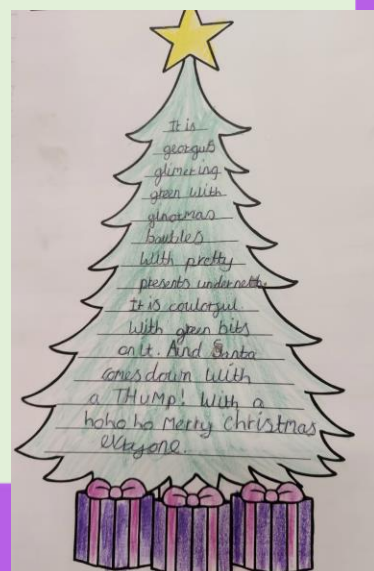 It is
georgus
glimering
green with
ginormas
baubles
With pretty
presents undernetth
It is coulorful.
With green bits
on it. And Santa
comes down with
a THUMP! With a
ho ho ho Merry Christmas
everyone.